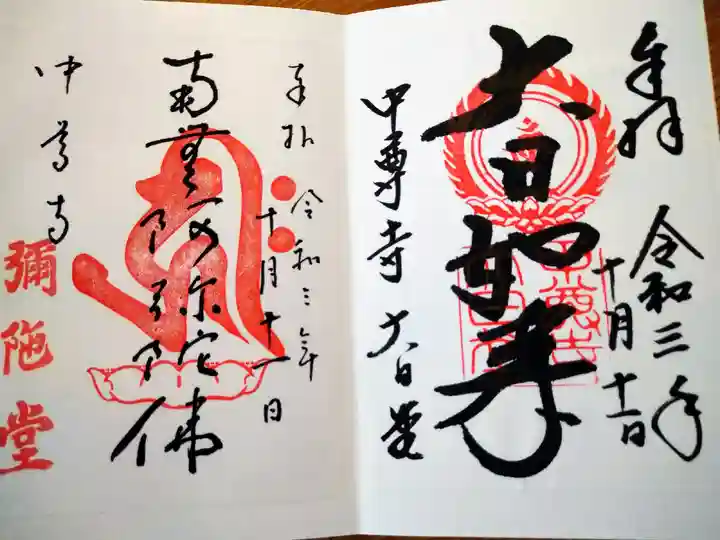 奉拝
令和三年
十月十一日
大日如来
中尊寺 大日堂
奉拝
令和三年
十月十一日
南無阿弥陀佛
中尊寺
彌陁堂